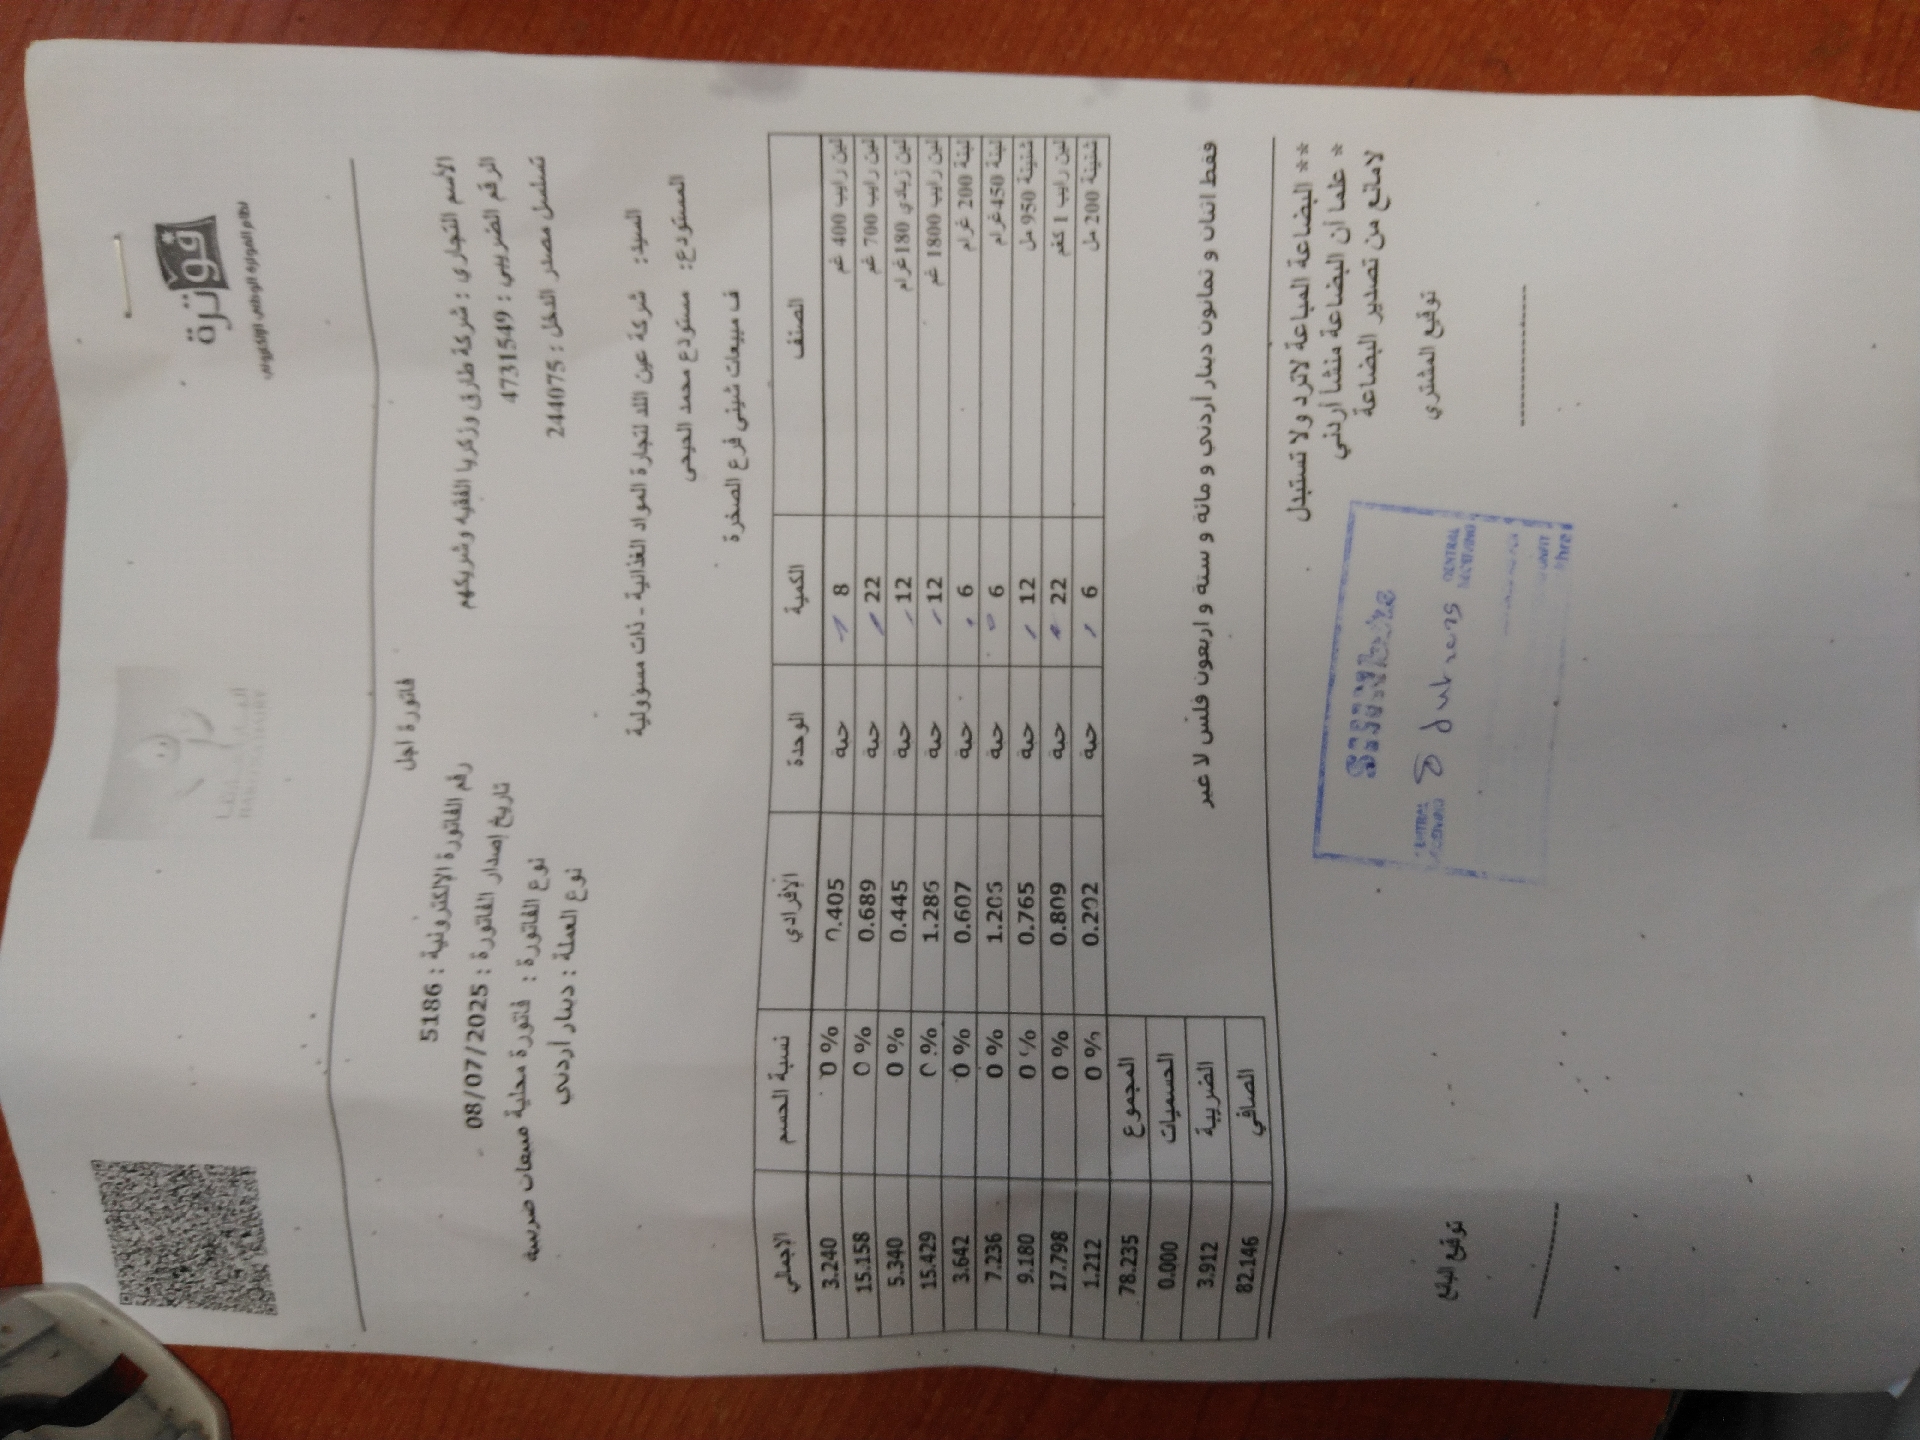 فوترة
نظام الفوترة الوطني الإلكتروني
فاتورة اجل
الأسم التجاري : شركة طارق وزكريا الفقيه وشريكهم
رقم الفاتورة الإلكترونية : 5186
الرقم الضريبي : 4731549
تاريخ إصدار الفاتورة : 08/07/2025
تسلسل مصدر الدخل : 244075
نوع الفاتورة : فاتورة محلية مبيعات ضريبية
نوع العملة : دينار أردني
السيد: شركة عين اللد لتجارة المواد الغذائية - ذات مسؤولية
المستودع: مستودع محمد
ف مبيعات شيني فرع الصخرة
الصنف الكمية الوحدة الإفرادي نسبة الحسم الإجمالي
لبن رايب 400 غم 8 حبة 0.405 0 % 3.240
لبن رايب 700 غم 22 حبة 0.689 0 % 15.158
لبن زبادي 180غرام 12 حبة 0.445 0 % 5.340
لبن رايب 1800 غم 12 حبة 1.286 0 % 15.429
لبنة 200 غرام 6 حبة 0.607 0 % 3.642
لبنة 450غرام 6 حبة 1.206 0 % 7.236
شنينة 950 مل 12 حبة 0.765 0 % 9.180
لبن رايب 1 كغم 22 حبة 0.809 0 % 17.798
شنينة 200 مل 6 حبة 0.202 0 % 1.212
المجموع 78.235
الحسميات 0.000
الضريبة 3.912
الصافي 82.146
فقط اثنان و ثمانون دينار أردني و مائة و ستة و اربعون فلس لا غير
** البضاعة المباعة لاترد ولا تستبدل
* علما ان البضاعة منشا اردني
لامانع من تصدير البضاعة
توقيع المشتري
توقيع البائع
CENTRAL RECEIVING
CENTRAL RECEIVING